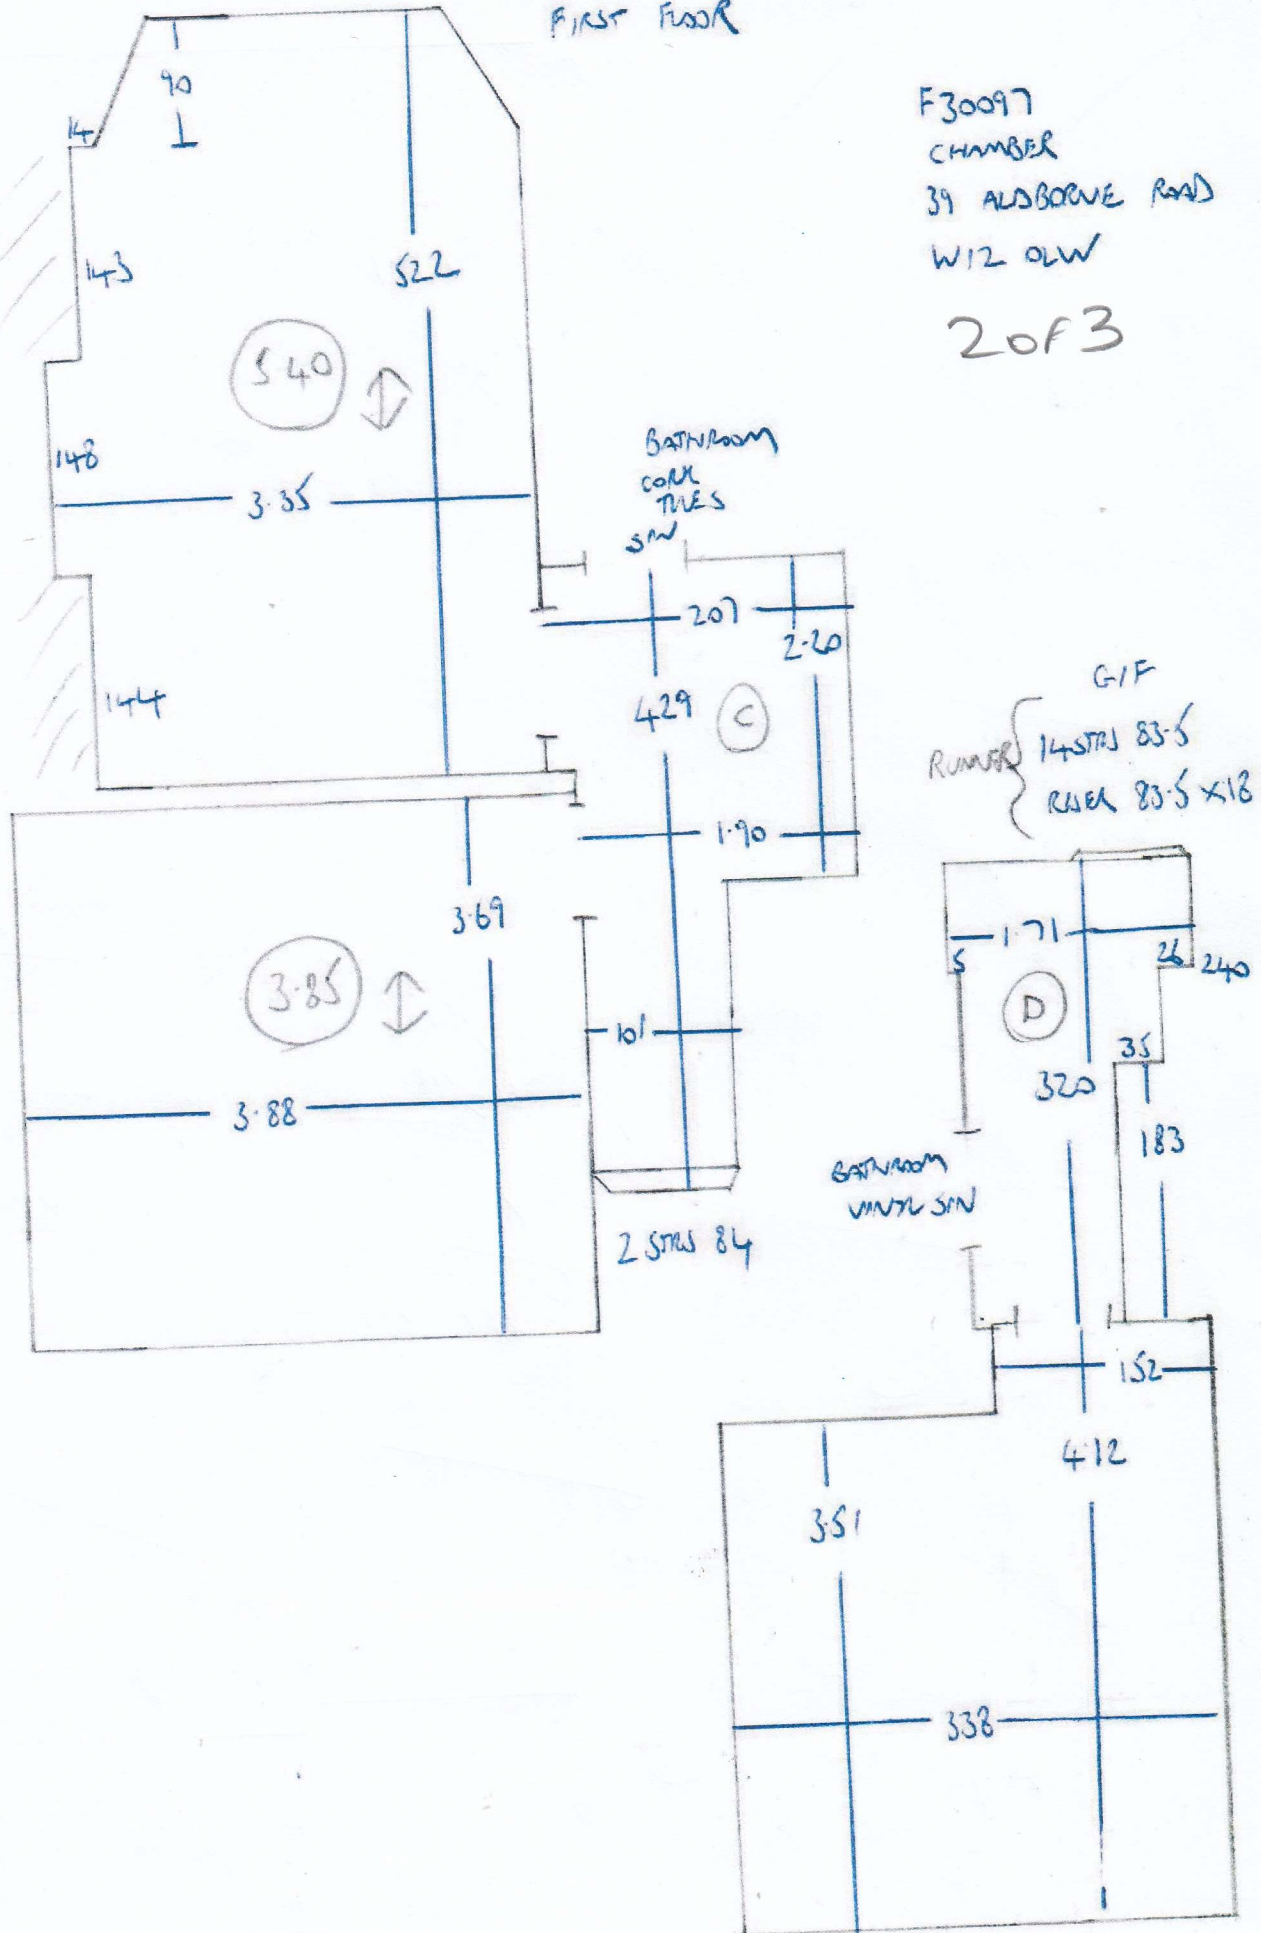 FIRST FLOOR
F30097
CHAMBER
39 ALDBORNE ROAD
W12 0LW
2 OF 3
90
14
143
522
5.40
148
3.35
144
BATHROOM
CORK
TILES
S/N
207
2.20
429
C
1.90
3.69
3.85
101
3.88
2 STRS 84
G/F
RUNNER
14 STRS 83.5
RISER 83.5 x 18
1.71
5
26
240
D
35
320
183
BATHROOM
VINYL S/N
152
4.12
3.51
338